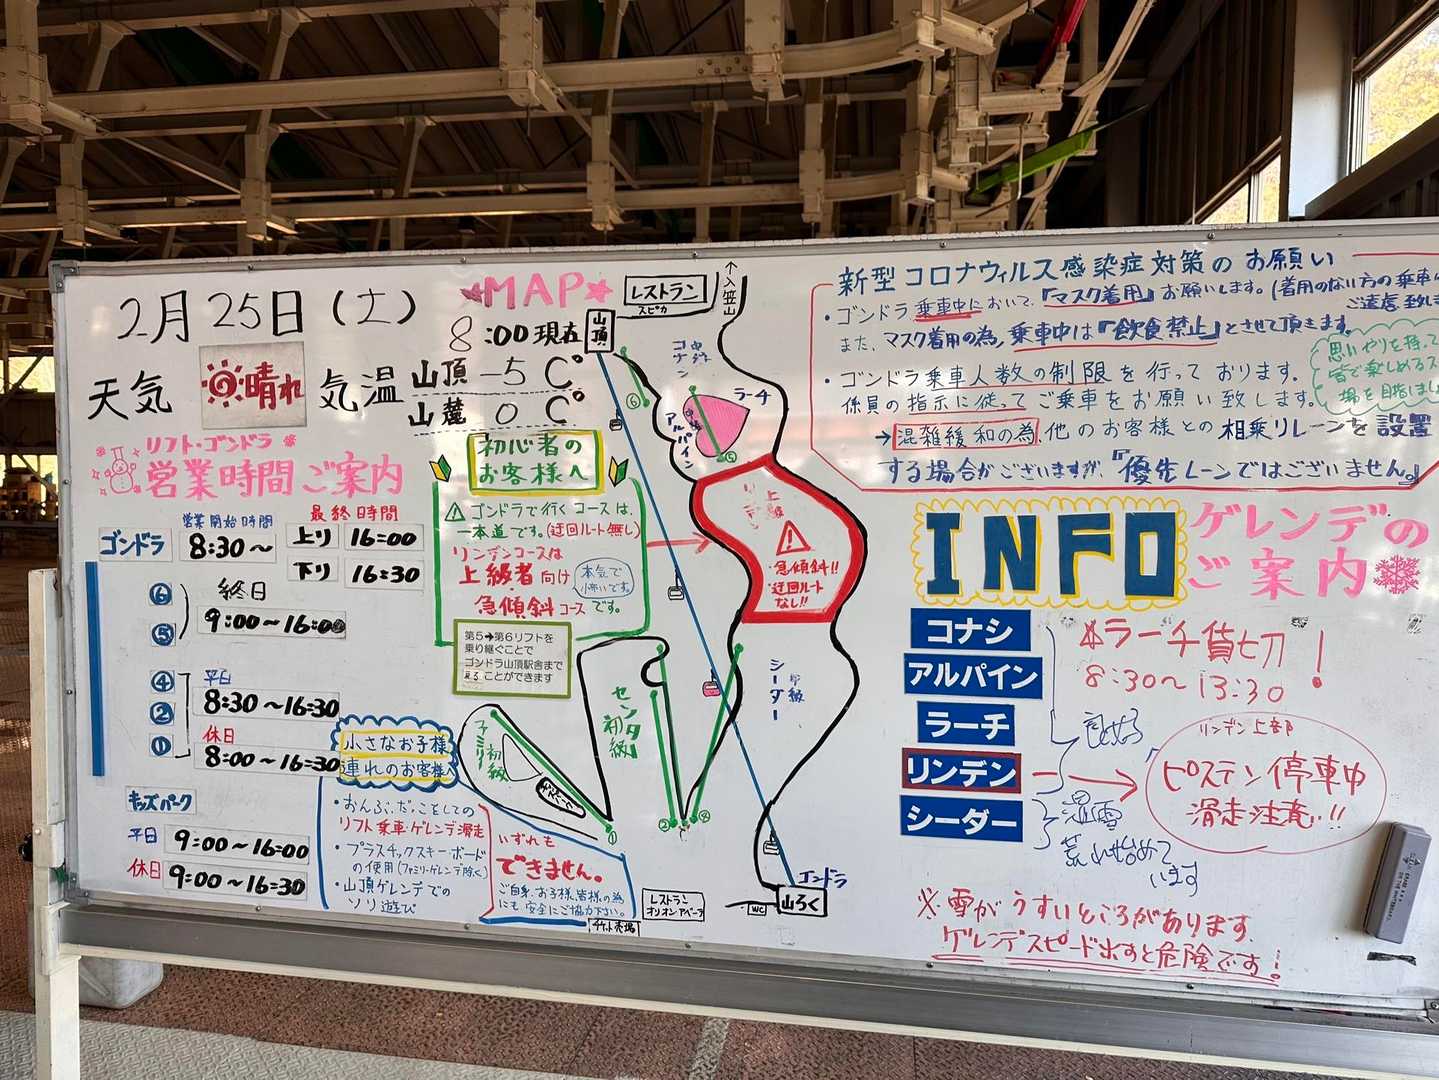 2月25日(土)
天気 晴れ 気温
8:00現在
山頂 -5 C°
山麓 0 C°
リフト・ゴンドラ
営業時間ご案内
営業開始時間 最終時間
ゴンドラ 8:30~ 上り 16:00
下り 16:30
⑥ 終日
⑤ 9:00~16:00
④ 平日
② 8:30~16:30
① 休日
8:00~16:30
キッズパーク
平日 9:00~16:00
休日 9:00~16:30
初心者の
お客様へ
ゴンドラで行くコースは、
一本道です。(迂回ルート無し)
リンデンコースは
上級者向け
急傾斜コースです。
本気で
小布いです。
第5→第6リフトを
乗り継ぐことで
ゴンドラ山頂駅舎まで
戻ることができます
小さなお子様
連れのお客様へ
・おんぶ、だっことしての
リフト乗車・ゲレンデ滑走
・プラスチックスキー・ボード
の使用(ファミリーゲレンデ除く)
・山頂ゲレンデでの
ソリ遊び
いずれも
できません。
ご自身、お子様、皆様の為
にも安全にご協力下さい。
MAP
レストラン
スピカ
↑入笠山
山頂
コナシ
中級
アルパイン
ラーチ
⑥
⑤
上級
リンデン
・急傾斜!!
・迂回ルート
なし!!
中級
シーダー
センタ
初級
ファミリー
初級
①
②
④
レストラン
オリオンアベーア
チケット売場
WC
山ろく
ゴンドラ
新型コロナウィルス感染症対策のお願い
・ゴンドラ乗車中において、『マスク着用』お願いします。(着用のない方の乗車
ご遠慮致しま
また、マスク着用の為、乗車中は『飲食禁止』とさせて頂きます。
・ゴンドラ乗車人数の制限を行っております。
係員の指示に従ってご乗車をお願い致します。
→混雑緩和の為、他のお客様との相乗りレーンを設置
する場合がございますが、『優先レーンではございません。』
思いやりを持って
皆で楽しめるス
場を目指しまし
INFO
ゲレンデの
ご案内
コナシ
アルパイン
ラーチ
リンデン
シーダー
ラーチ貸切!
8:30~13:30
リンデン上部
ピステン停車中
滑走注意!!
湿雪
荒れ始めて
います
※雪がうすいところがあります
ゲレンデスピード出すと危険です!